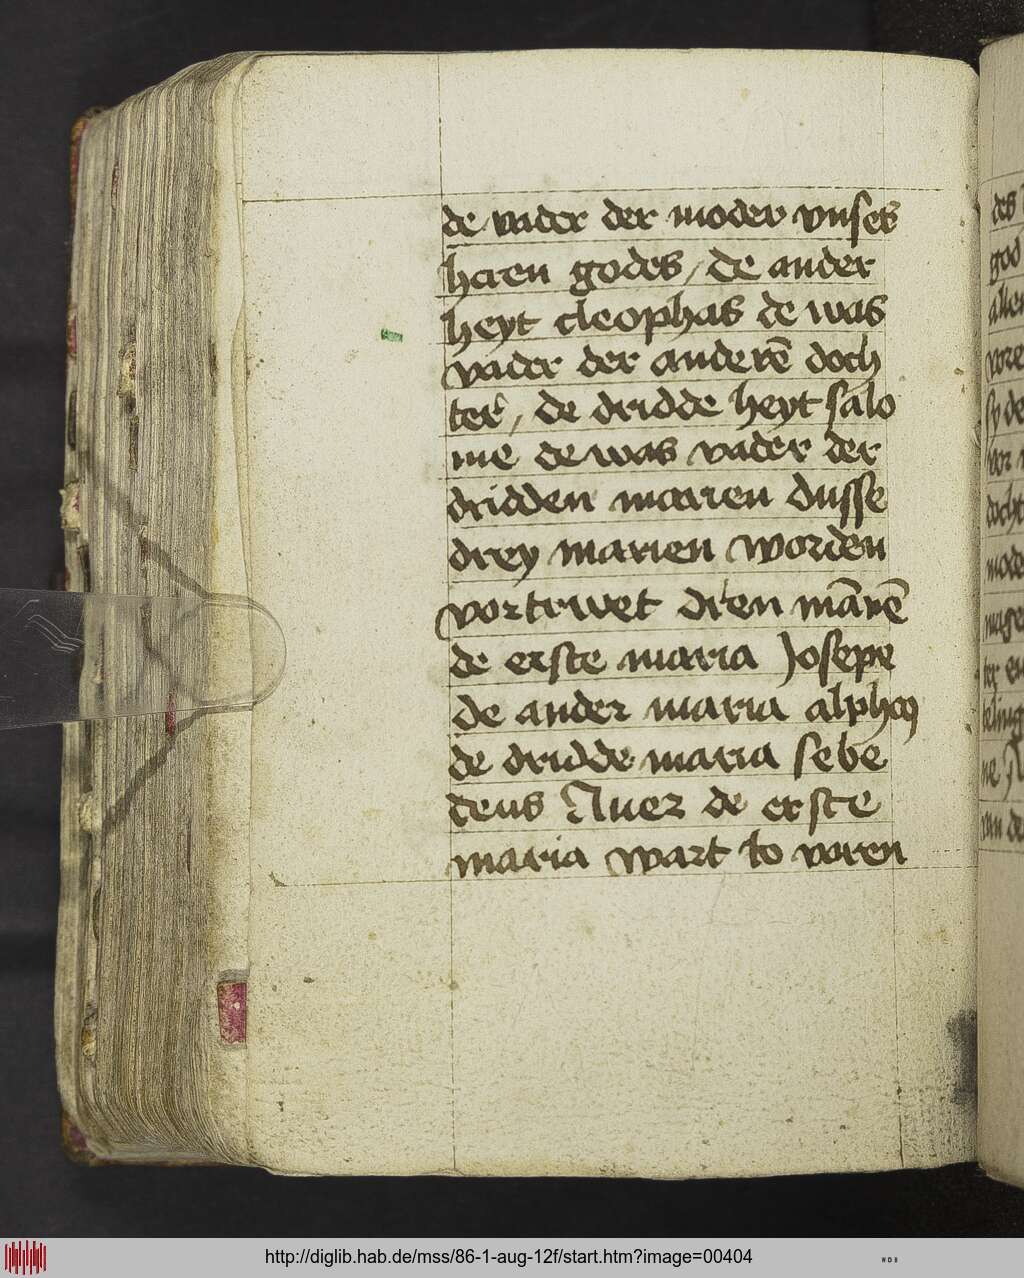 de vader der moder vnses
heren godes / de ander
heyt cleophas de was
vader der anderē doch
ter / de dridde heyt salo
me de was vader der
dridden marien Dusse
drey marien worden
vortruwet dren mānē
de erste maria Josepe
de ander maria alpheo
de dridde maria sebe
deus Auer de erste
maria wart to voren
des
god
aller
vore
sy de
vor
docht
mode
mage
ter en
teling
ne
van de
http://diglib.hab.de/mss/86-1-aug-12f/start.htm?image=00404